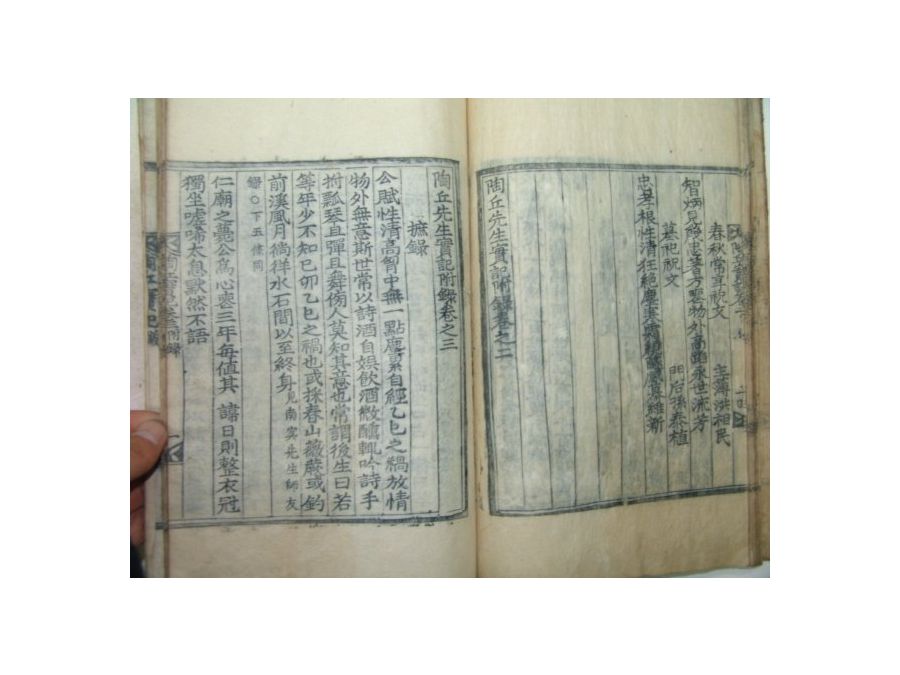 春秋常享祝文 主簿洪相民
智炳見幾忠著方喪物外高蹈永世流芳
墓祀祝文 門后孫泰植
忠畏根性清狂絶塵
陶丘先生實記附錄卷之二
陶丘先生實記附錄卷之三
摭錄
公賦性清高胷中無一點塵累自經乙巳之禍放情
物外無意斯世常以詩酒自娛飲酒微醺輒吟詩手
拊瓢琴且彈且舞傍人莫知其意也常謂後生曰若
等年少不知己卯乙巳之禍也或採春山薇蕨或釣
前溪風月徜徉水石間以至終身見南冥先生師友
錄○下五條同
仁廟之薨公爲心喪三年每値其 諱日則整衣冠
獨坐噓唏太息默然不語